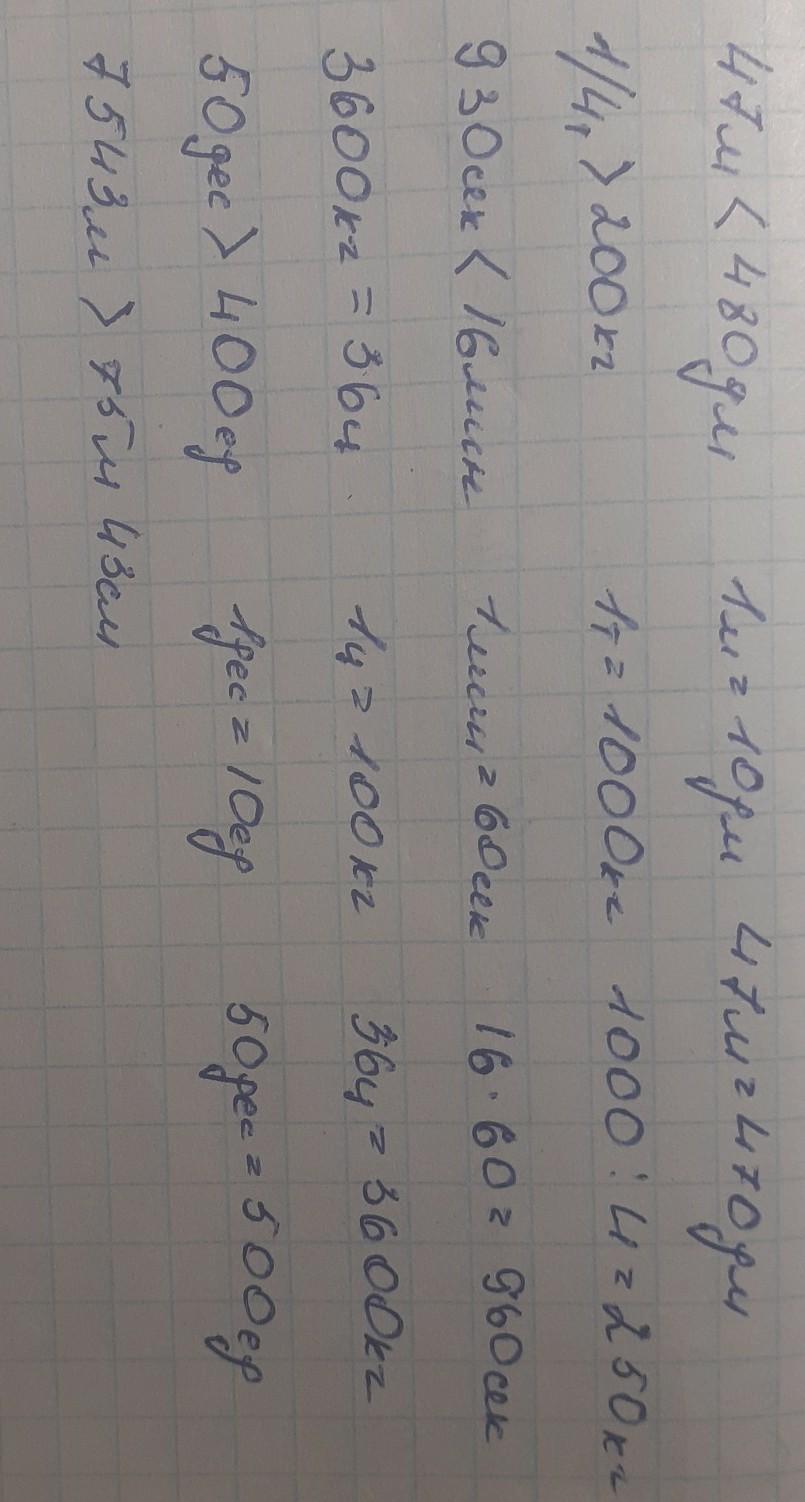 47м < 480дм 1м = 10дм 47м = 470дм
1/4т > 200кг 1т = 1000кг 1000 : 4 = 250кг
930сек < 16мин 1мин = 60сек 16 · 60 = 960сек
3600кг = 36ц 1ц = 100кг 36ц = 3600кг
50дес > 400ед 1дес = 10ед 50дес = 500ед
7543м > 75м 43см